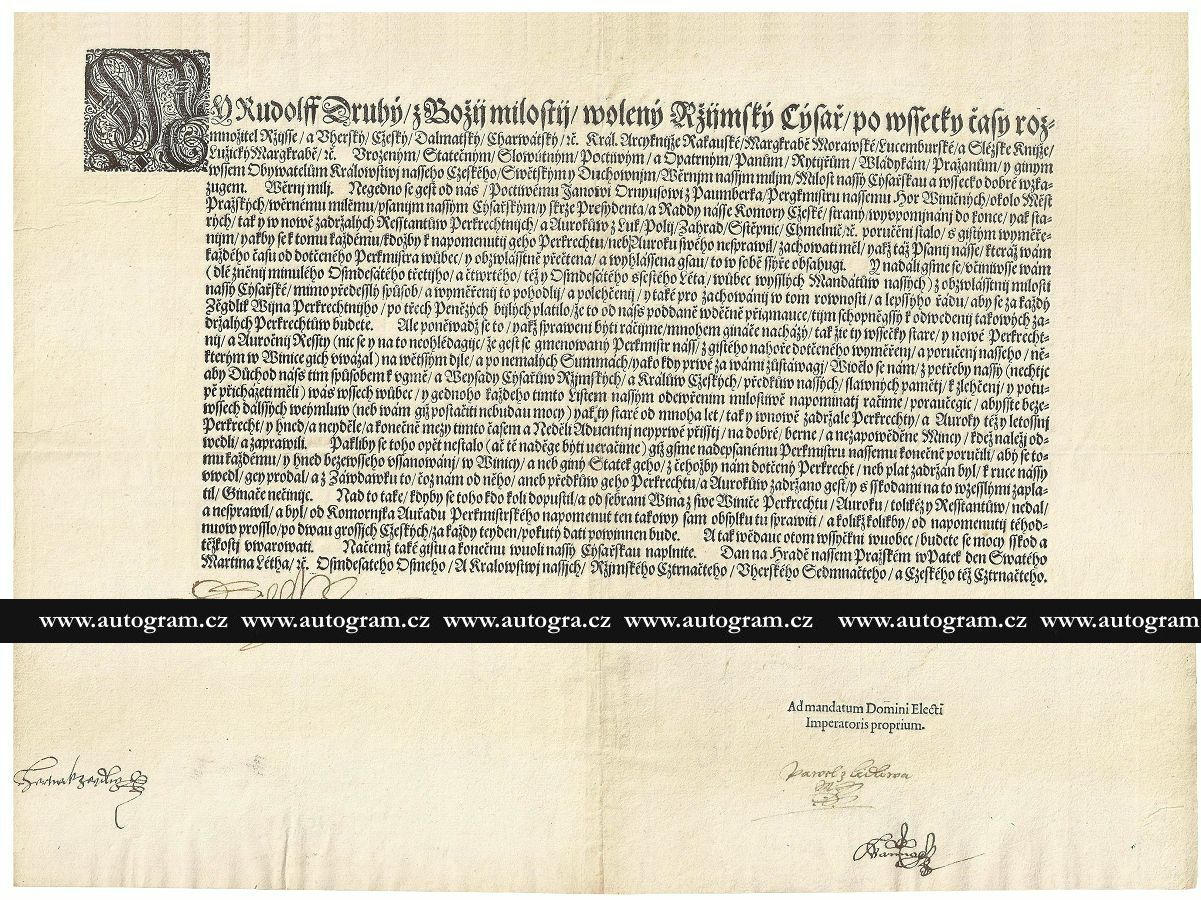 MY Rudolff Druhý/ z Božij milostij/ wolený Ržijmský Cýsař/ po wssecky časy roz-
množitel Ržijsse/ a Vherský/ Czeský/ Dalmatský/ Charwátský/ ꝛč. Král. Arcyknijže Rakauské/ Margkrabě Morawské/ Lucemburské/ a Slézské Knijže/
Lužický Margkrabě/ ꝛč. Vrozeným/ Statečným/ Slowutným/ Poctiwým/ a Opatrným/ Panům/ Rytijřům/ Wládykám/ Pražanům/ y giným
wssem Obywatelům Králowstwij nasseho Czeského/ Swětským y Duchownijm/ Wěrným nassijm milým/ Milost nassý Cýsařskau a wssecko dobré wzka-
zugem. Wěrnij milij. Negedno se gest od nás/ Poctiwému Janowi Ornyusowi z Paumberka/ Pergkmistru nassemu Hor Winičných/ okolo Měst
Pražských/ wěrnému milému/ psanijm nassým Cýsařským/ y skrze Presydenta/ a Raddy násse Komory Czeské/ strany wyvpomijnánij do konce/ yak sta-
rých/ tak y w nowě zadržalých Resstantůw Perkrechtnijch/ a Aurokůw z Luk/ Polij/ Zahrad/ Sstěpnic/ Chmelnic ꝛč. poručenij stalo/ s gistým wyměře-
nijm/ yakby se k tomu každému/ kdožby k napomenutij geho Perkrechtu/ neb Auroku swého nesprawil/ zachowati měl/ yakž táž Psanij násse/ kteráž wám
každého času od dotčeného Perkmistra wůbec/ y obzwlásstně přečtena/ a wyhlássena gsau/ to w sobě ssýře obsahugij. Y nadáli gsme se/ včinijwsse wám
(dlé zněnij minulého Osmdesátého třetijho/ a čtwrtého/ též y Osmdesátého ssestého Léta/ wůbec wysslých Mandátůw nassých) z obzwlásstnij milosti
nassý Cýsařské/ mimo předesslý spůsob/ a wyměřenij to pohodlij/ a polehčenij/ y také pro zachowánij w tom rownosti/ a lepssýho řádu/ aby se za každý
Žegdlijk Wijna Perkrechtnijho/ po třech Penězých bijlých platilo/ že to od nás poddaně wděčně přigmauce/ tijm schopněgssý k odwedenij takowých za-
držalých Perkrechtůw budete. Ale poněwadž se to/ yakž sprawenij býti ráčijme/ mnohem gináče nacházý/ tak že ty wssecky staré/ y nowé Perkrecht-
nij/ a Auročnij Ressty (nic se y na to neohlédagijc/ že gest se gmenowaný Perkmistr náš/ z gistého nahoře dotčeného wyměřenij/ a poručenij nasseho/ ně-
kterým w Winice gich vwázal) na wětssým dijle/ a po nemalých Summách/ yako kdy prwé za wámi zůstáwagij/ Widělo se nám/ z potřeby nassý (nechtijc
aby Důchod náš tijm spůsobem k vgmě/ a Weysady Cýsařůw Ržijmských/ a Králůw Czeských/ předkůw nassých/ slawných pamětij/ k zlehčenij/ y potu-
pě přicházeti měli) wás wssech wůbec/ y gednoho každého tijmto Listem nassým odewřenijm milostiwě napomijnati ráčijme/ porauče gijc/ abysste beze-
wssech dalssých weymluw (neb wám giž postačiti nebudau mocy) yak ty staré od mnoha let/ tak y w nowě zadržalé Perkrechty/ a Auroky též y letossnij
Perkrecht/ y hned/ a neydéle/ a konečně mezy tijmto časem a Nedělij Aduentnij neyprwé přijsstij/ na dobré/ berné/ a nezapowěděné Mincy/ kdež náležij od-
wedli/ a zaprawili. Pakliby se toho opět nestalo (ač té naděge býti neráčijme) giž gsme nadepsanému Perkmistru nassemu konečně poručili/ aby se to-
mu každému/ y hned bezewsseho vssanowánij/ w Winicy/ a neb giný Statek geho/ z čehožby nám dotčený Perkrecht/ neb plat zadržán byl/ k ruce nássý
vwedl/ gey prodal/ a z Záwdawku to/ což nám od něho/ aneb předkůw geho Perkrechtu/ a Aurokůw zadržáno gest/ y s sskodami na to wzesslými zapla-
til/ Gináče nečinijc. Nad to také/ kdyby se toho kdo koli dopustil/ a od sebranij Wijna z swé Winice Perkrechtu/ Auroku/ tolikéž y Resstantůw/ nedal/
a nesprawil/ a byl/ od Komornijka Auřadu Perkmistrského napomenut ten takowý sám obsýlku tu sprawiti/ a kolikžkolikby/ od napomenutij téhod-
nůw prosslo/ po dwau grossých Czeských/ za každý teyden/ pokuty dáti powinnen bude. A tak wědauc o tom wssýckni wuobec/ budete se mocy sskod a
těžkostij vwarowati. Načemž také gistau konečnau wuoli nassý Cýsařskau naplnijte. Dan na Hradě nassem Pražském/ w Pátek den Swatého
Martina Létha/ ꝛč. Osmdesátého Osmého/ A Králowstwij nassých/ Ržijmského Cztrnácteho/ Vherského Sedmnáctého/ a Czeského též Cztrnáctého.
www.autogram.cz www.autogram.cz www.autogra.cz www.autogram.cz www.autogram.cz www.autogram
Ad mandatum Domini Electi
Imperatoris proprium.
Pawel z